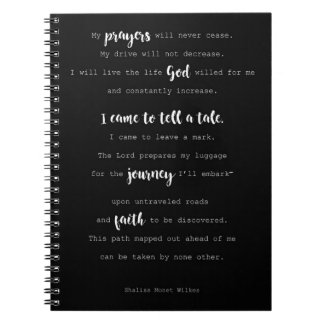 My prayers will never cease.
My drive will not decrease.
I will live the life God willed for me
and constantly increase.
I came to tell a tale.
I came to leave a mark.
The Lord prepares my luggage
for the journey I'll embark—
upon untraveled roads
and faith to be discovered.
This path mapped out ahead of me
can be taken by none other.
Shaliss Monet Wilkes